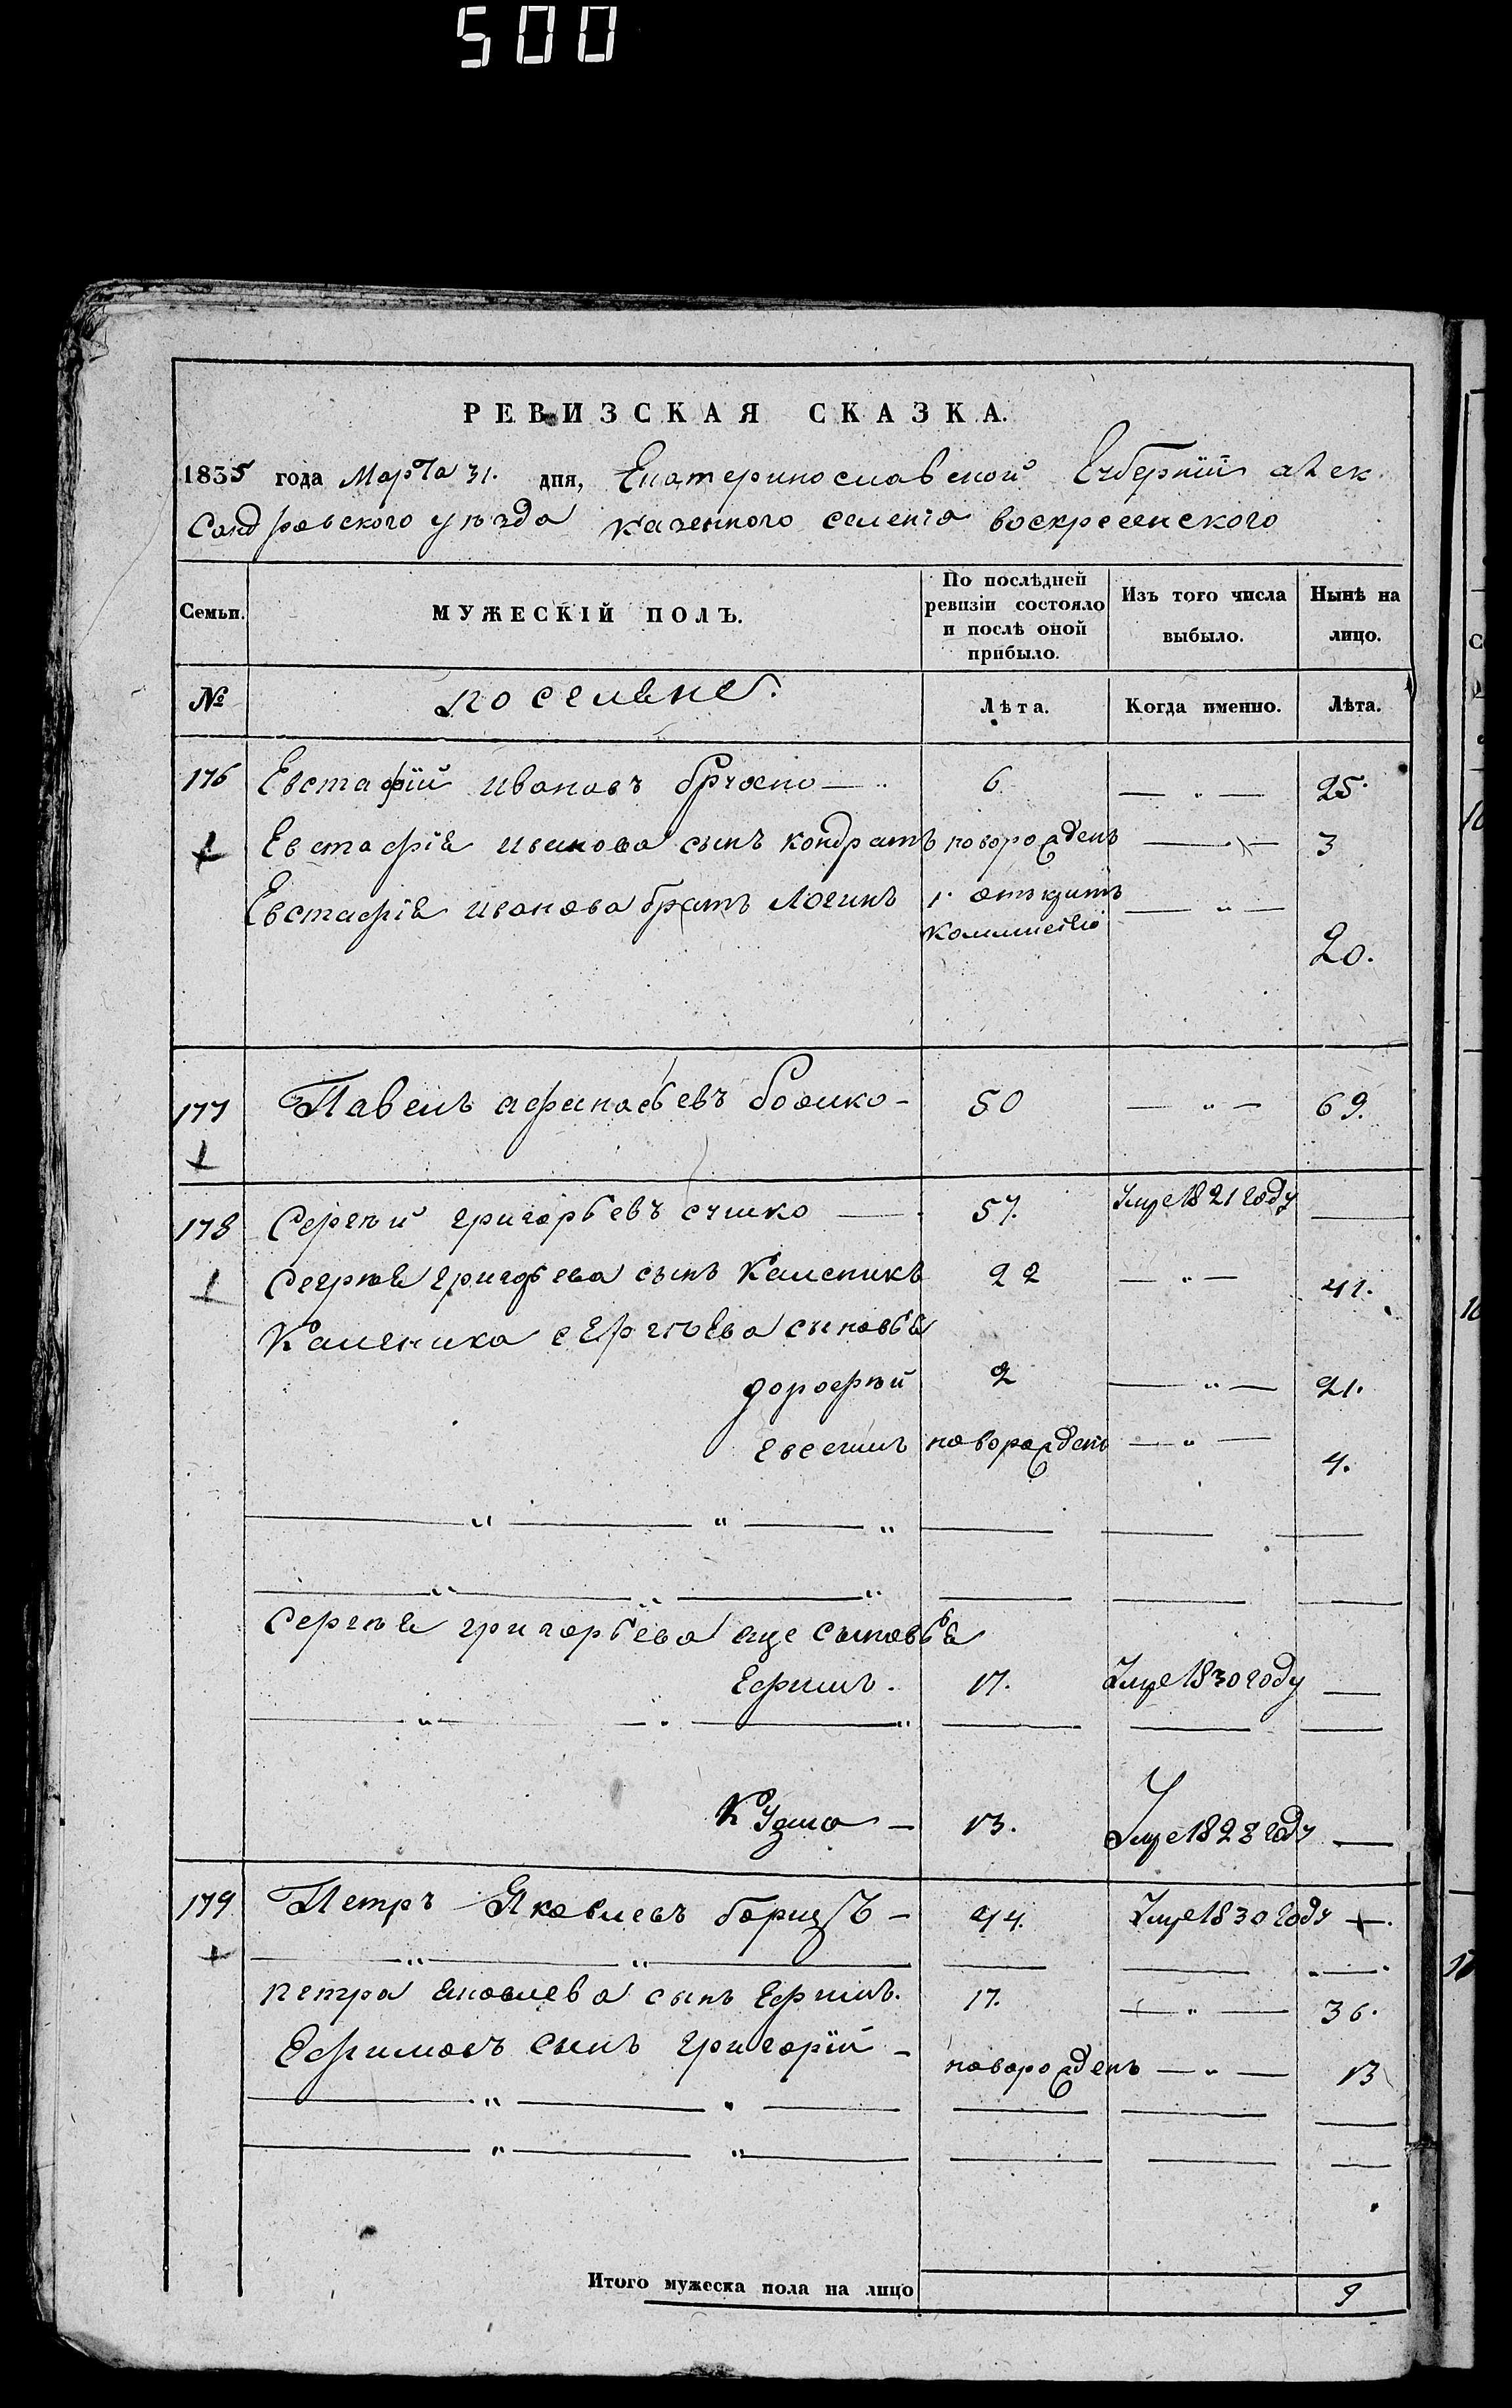 500
РЕВИЗСКАЯ СКАЗКА.
1835 года Марта 31. дня, Екатеринославской Губернїи алек
Сандровского уѣзда казенного селенія воскресенского
Семьи. МУЖЕСКІЙ ПОЛЪ. По послѣдней ревизіи состояло и послѣ оной прибыло. Изъ того числа выбыло. Нынѣ на лицо.
№ поселяне. Лѣта. Когда именно. Лѣта.
176 Евстафїй ивановъ — 6 — " — 25.
Евстафія иванова сынъ кондратъ новорожденъ — " — 3
Евстафія иванова братъ Логинъ 1. — " —
20.
177 Павелъ афанасьевъ бошко - 50 — " — 69.
178 Сергѣй григорьевъ сушко — 57. Умре 1821 году —
Сергѣя григорьева сынъ Каленикъ 22 — " — 41.
Каленика сергѣева сыновья
дорофѣй 2 — " — 21.
евсѣй новорожденъ — " — 4.
Сергѣя григорьева еще сыновья
Ефимъ. 17. Умре 1830 году —
Кузма — 13. Умре 1828 году —
179 Петръ Яковлевъ борщъ — 44. Умре 1830 году —
петра яковлева сынъ Ефимъ. 17. — " — 36.
Ефимовъ сынъ григорїй - новорожденъ — " — 13
Итого мужеска пола на лицо 9